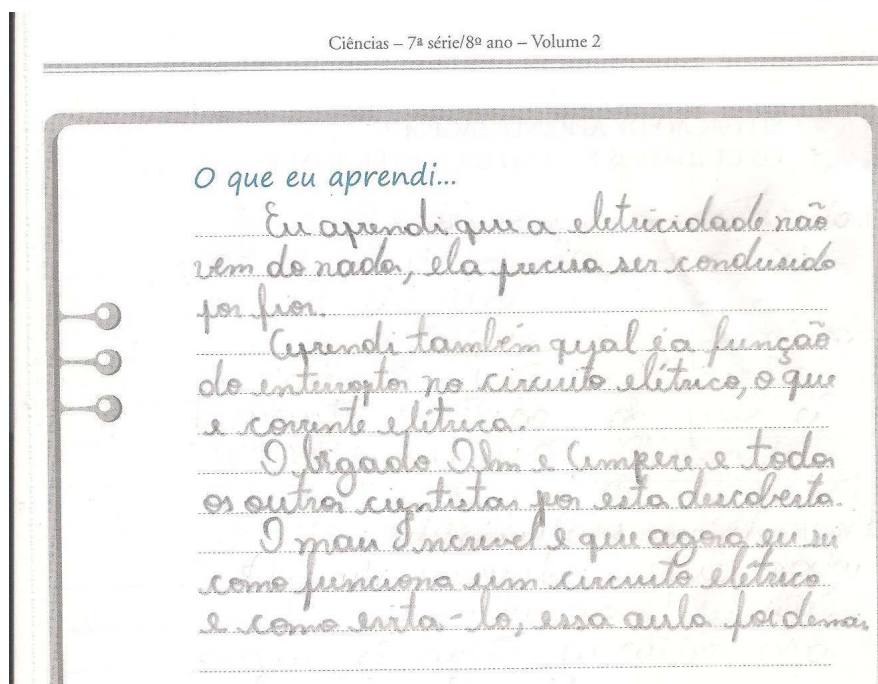 Ciências – 7ª série/8º ano – Volume 2
O que eu aprendi...
Eu aprendi que a eletricidade não
vem do nada, ela precisa ser condusido
por fios.
Aprendi também qual é a função
do interruptor no circuito elétrico, o que
e corrente elétrica.
Obrigado Ohm e Ampere e todos
os outros cientistas por esta descoberta.
O mais Incrivel e que agora eu sei
como funciona um circuito elétrico
e como evita-lo, essa aula foi demais